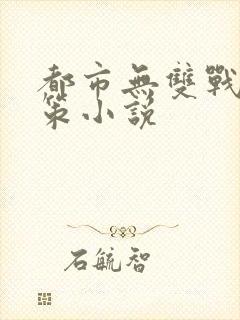 都市無雙戰
策小說
石毓智